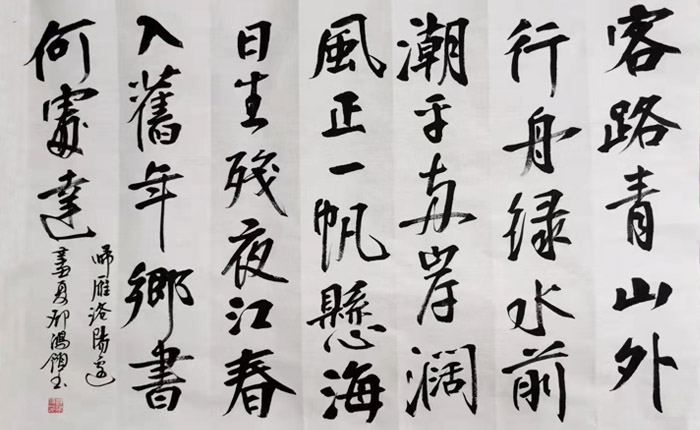 客路青山外
行舟绿水前
潮平两岸濶
風正一帆懸海
日生殘夜江春
入舊年鄉書
何處達
歸雁洛陽邊
夏 鴻 书